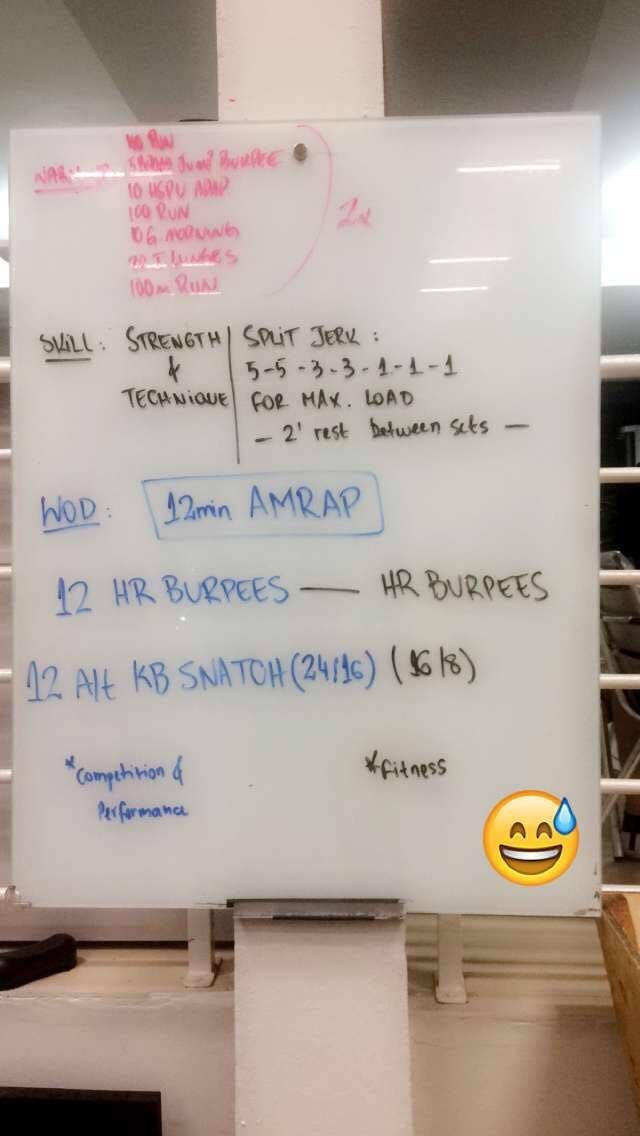 RUN
WARM JUMP BURPEE
10 HSPU ADAP
100 RUN
2x
10 G. MORNING
LUNGES
100m RUN
SKILL: STRENGTH & TECHNIQUE
SPLIT JERK:
5-5-3-3-1-1-1
FOR MAX. LOAD
- 2' rest between sets -
WOD: 12min AMRAP
12 HR BURPEES — HR BURPEES
12 Alt KB SNATCH (24/16) (16/8)
*Competition & Performance
*Fitness